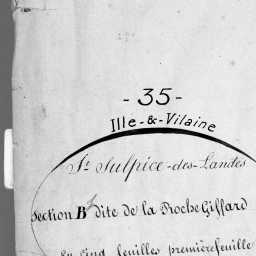 - 35 -
Ille-&-Vilaine
St. Sulpice-des-Landes
Section B dite de la Roche Giffard
En Cinq feuilles première feuille